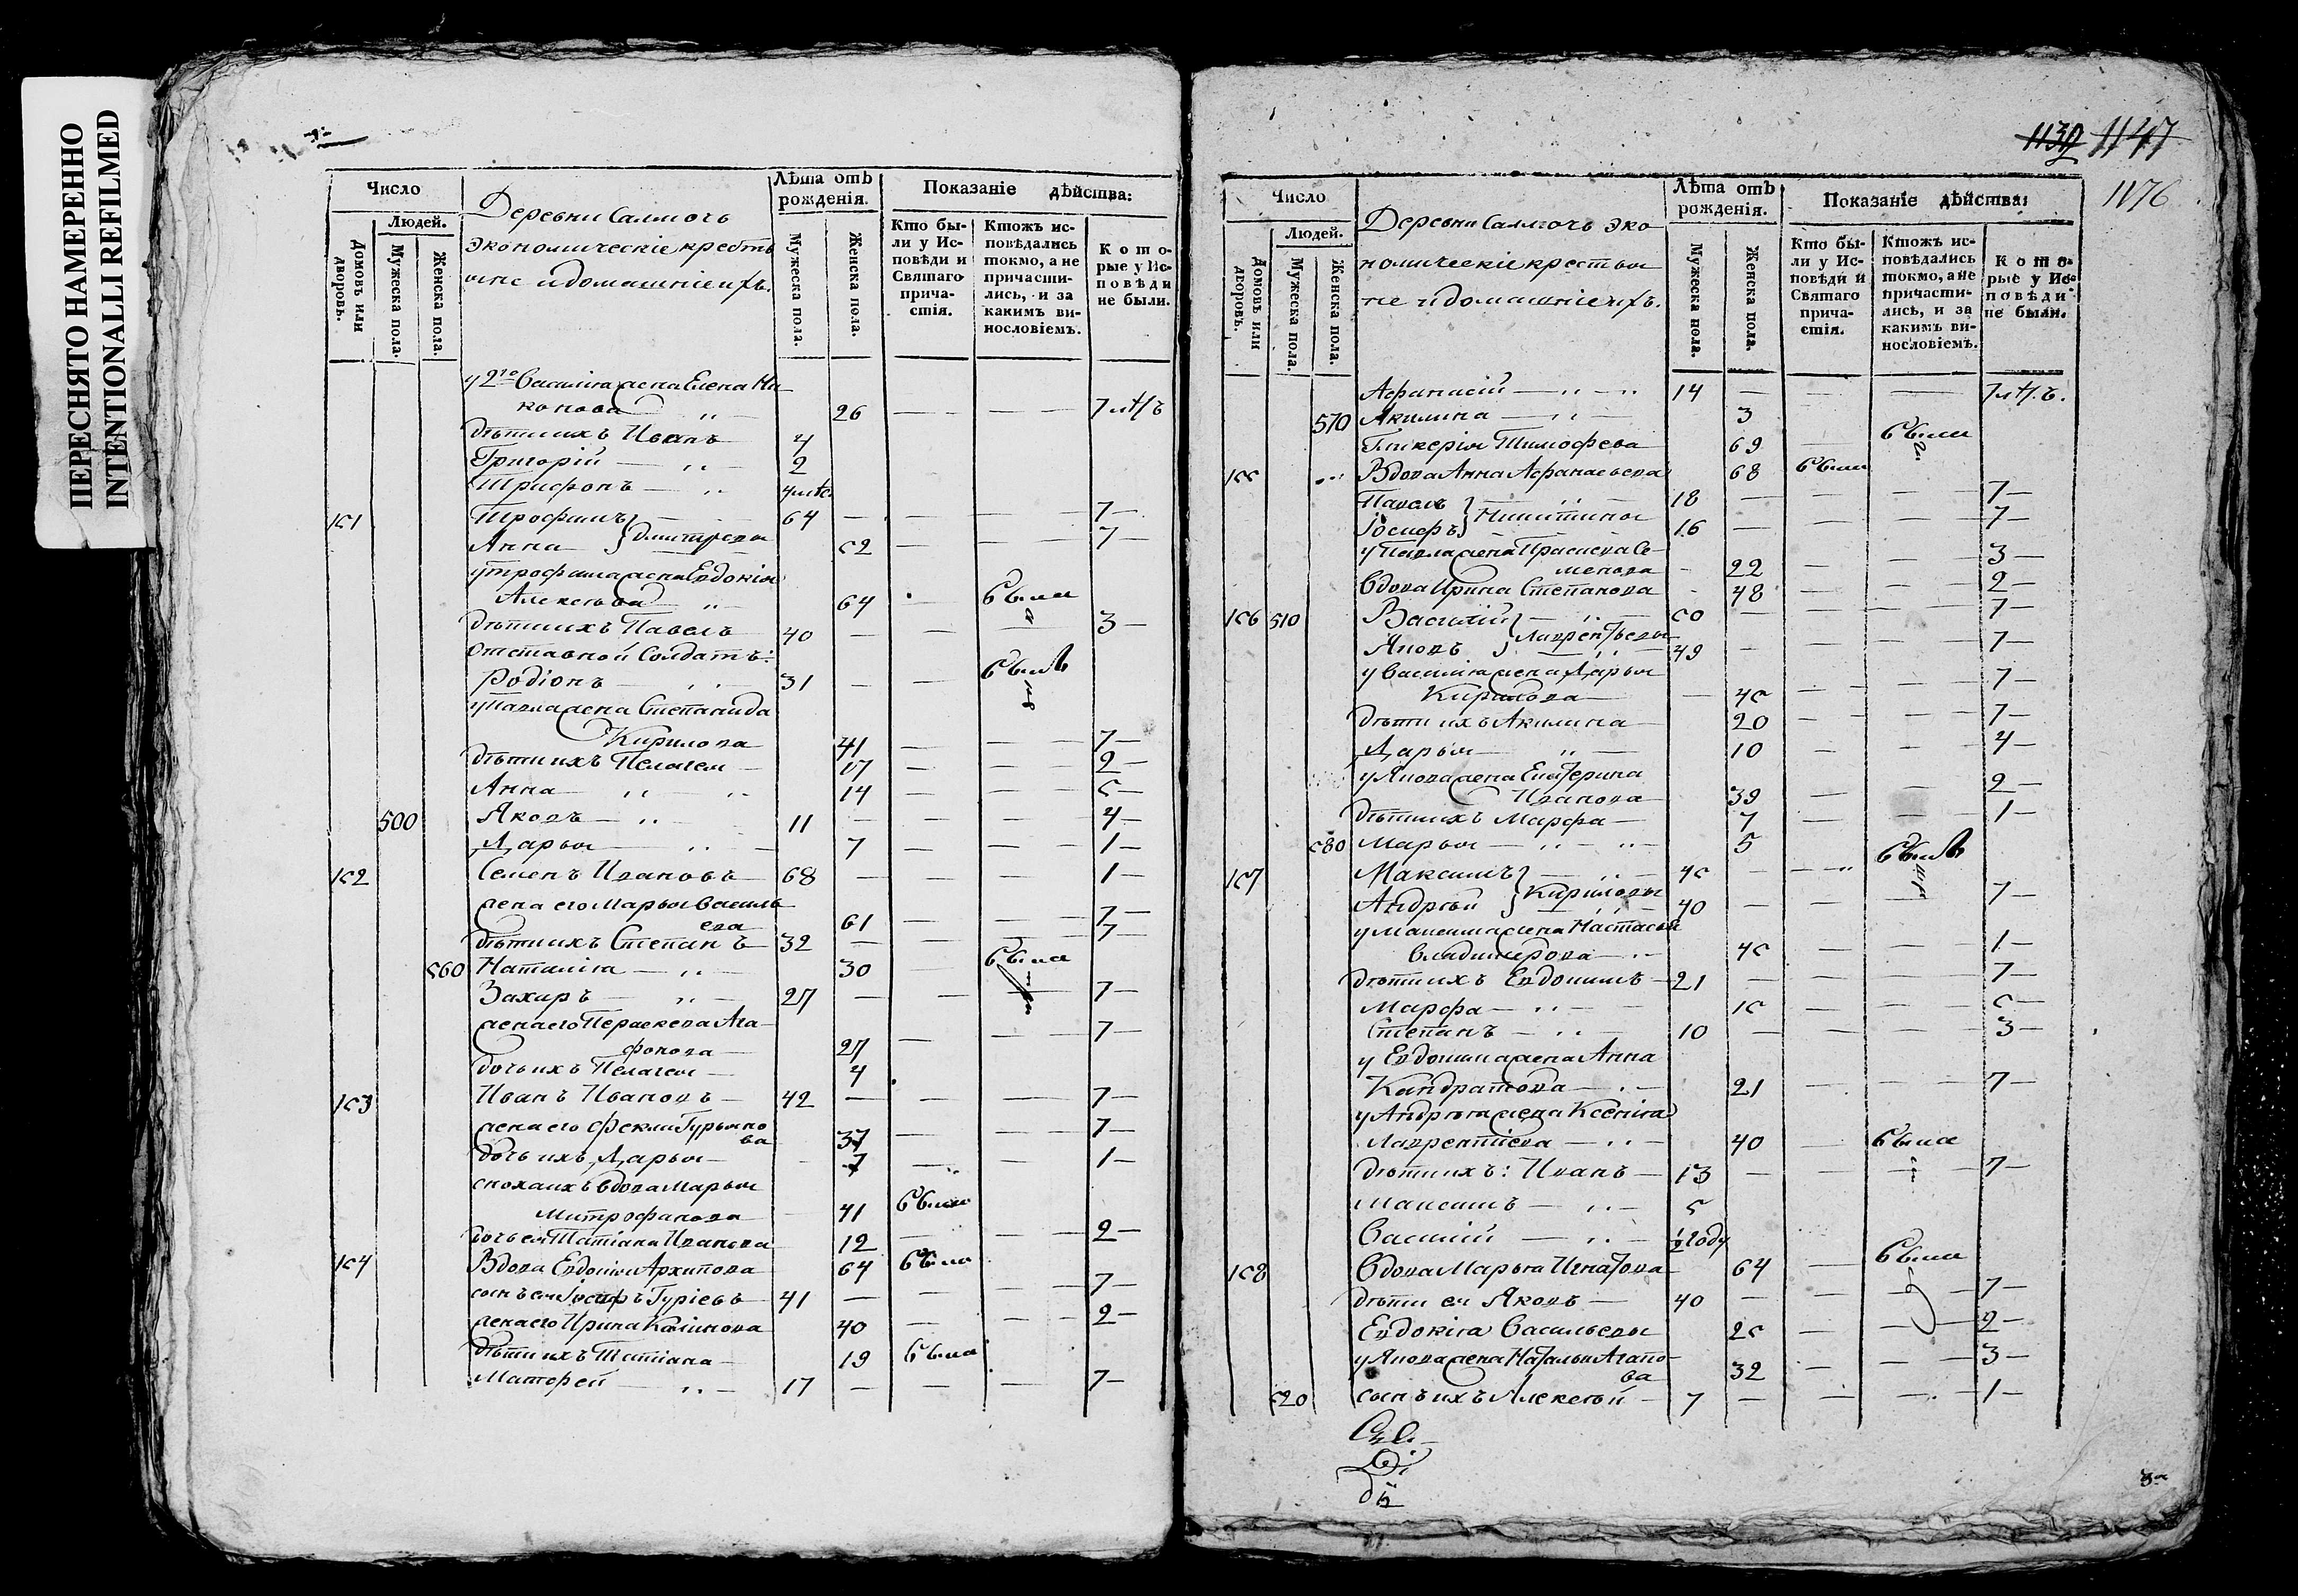 ПЕРЕСНЯТО НАМЕРЕННО
INTENTIONALLI REFILMED
Число
Людей.
Домовъ или дворовъ.
Мужеска пола.
Женска пола.
Деревни Салмочь
экономическіе крестья
не и домашніе ихъ.
Лѣта отъ рожденія.
Мужеска пола.
Женска пола.
Показаніе дѣйства:
Кто бы-
ли у Ис-
повѣди и
Святаго
прича-
стія.
Ктожъ ис-
повѣдались
токмо, а не
причасти-
лись, и за
какимъ ви-
нословіемъ.
Кото-
рые у Ис-
повѣди
не были.
у 2го Василія жена Елена Ни-
конова 26 7 лѣтъ
дѣти ихъ Иванъ 4
Григорій 2
Трифонъ
151 Трофимъ 64 7
Анна Дмитревы 52 7
у Трофима жена Евдокія
Алексѣева 64 была
дѣти ихъ Павелъ 40 3
отставной солдатъ:
Родіонъ 31 былъ
у Павла жена Степанида
Кирилова 41 7
дѣти ихъ Пелагея 17 2
Анна 14 5
500 Яковъ 11 4
Дарья 7 1
152 Семенъ Ивановъ 68 1
жена его Марья Василь
ева 61 7
дѣти ихъ Степанъ 32 7
560 Наталія 30 была
Захаръ 27 7
жена его Параскева Ага-
фонова 27 7
дочь ихъ Пелагея 4
153 Иванъ Ивановъ 42 7
жена его Фекла Гурьяно
ва 37 7
дочь ихъ Дарья 7 1
сноха ихъ вдова Марья
Митрофанова 41 была
дочь ея Татіана Иванова 12 2
154 Вдова Евдокія Архипова 64 была
сынъ ея Іосифъ Гуріевъ 41 7
жена его Ирина 40 2
дѣти ихъ Татіана 19 была
Матфей 17 7
1132 1147
1176
Число
Людей.
Домовъ или дворовъ.
Мужеска пола.
Женска пола.
Деревни Салмочь эко-
номическіе крестья
не и домашніе ихъ.
Лѣта отъ рожденія.
Мужеска пола.
Женска пола.
Показаніе дѣйства:
Кто бы-
ли у Ис-
повѣди и
Святаго
прича-
стія.
Ктожъ ис-
повѣдались
токмо, а не
причасти-
лись, и за
какимъ ви-
нословіемъ.
Кото-
рые у Ис-
повѣди
не были.
Афанасій 14 7 лѣтъ.
570 Акилина 3
Гликерія Тимофеева 69 была
155 Вдова Анна Афанасьева 68 была
Павелъ 18 7
Іосифъ Никитины 16 7
у Павла жена Праскева Се-
менова 22 3
вдова Ирина Степанова 48 2
156 510 Василій 50 7
Яковъ Лаврентьевы 49 7
у Василія жена Дарья
Кирилова 45 7
дѣти ихъ Акилина 20 7
Дарья 10 4
у Якова жена Екатерина
Иванова 39 2
дѣти ихъ Марфа 7 1
580 Марья 5
157 Максимъ 45 былъ
Андрѣй Кириловы 40 7
у Максима жена Настасья
Владимерова 45 1
дѣти ихъ Евдокимъ 21 7
Марфа 15 5
Степанъ 10 3
у Евдокима жена Анна
Кандратова 21 7
у Андрѣя жена Ксенія
Лаврентіева 40 была
дѣти ихъ: Иванъ 13 7
Максимъ 5
Василій 1/2 году
158 Вдова Марья Игнатова 64 была
дѣти ея Яковъ 40 7
Евдокіа Васильевы 25 2
у Якова жена Наталья Агапо-
ва 32 3
520 сынъ ихъ Алексѣй 7 1